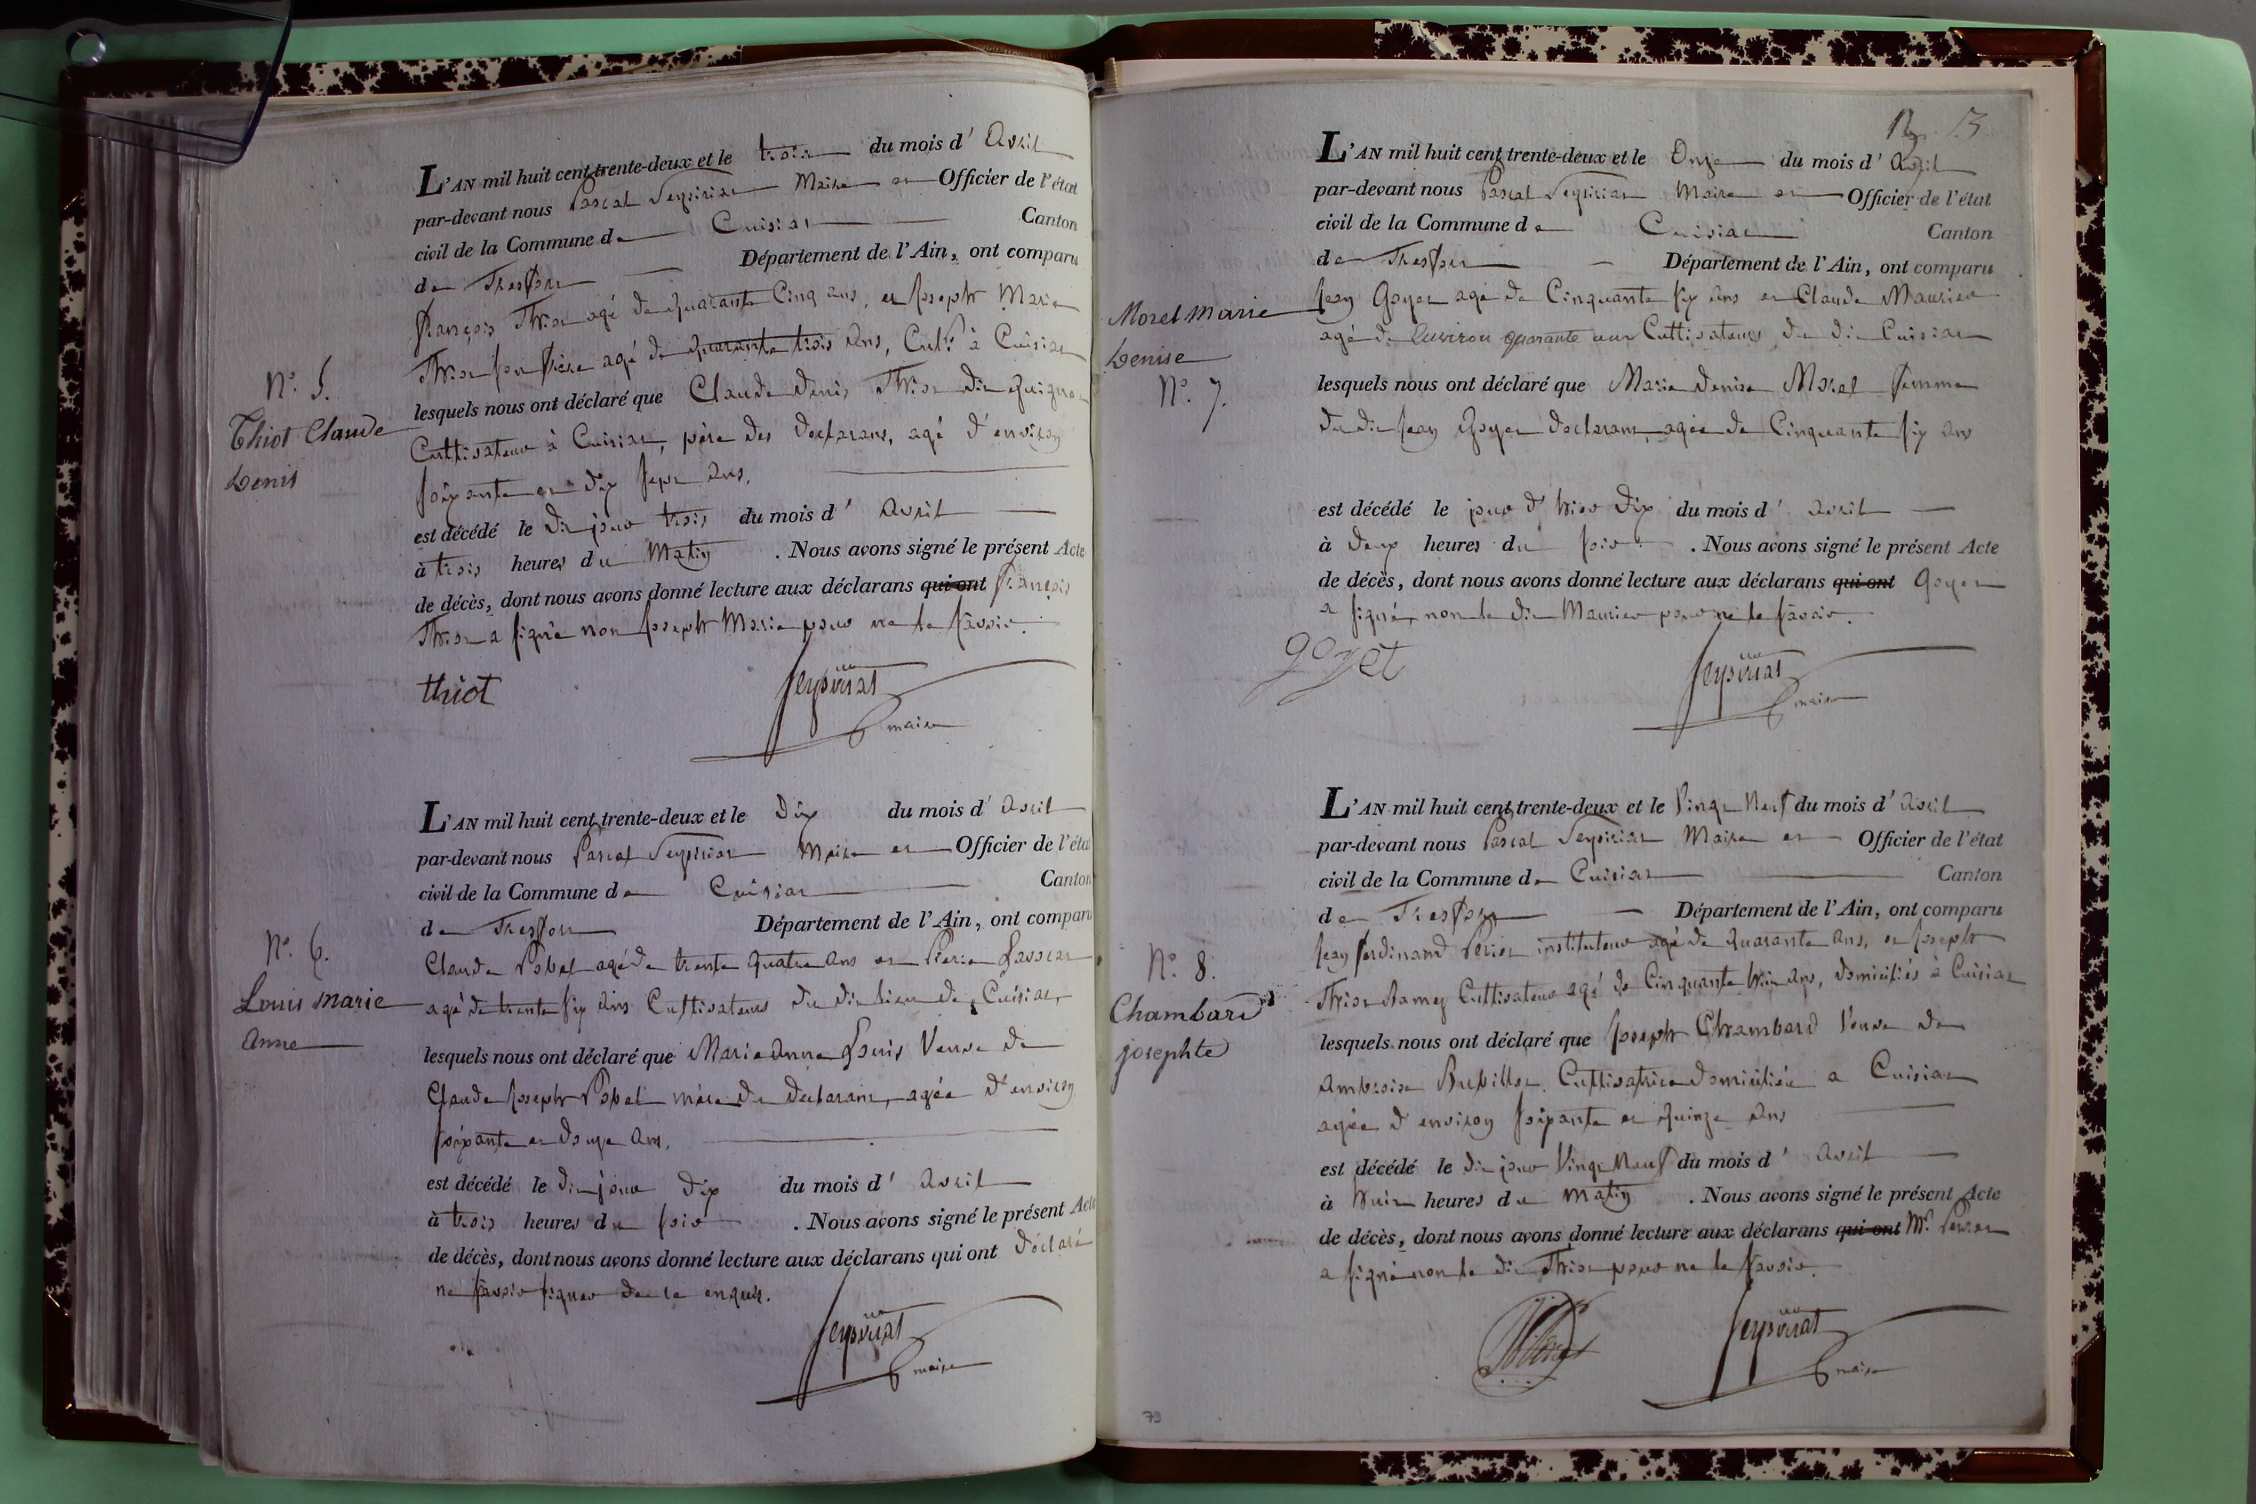 L'AN mil huit cent trente-deux et le trois du mois d' Avril
par-devant nous Pascal Seysiriat Maire et Officier de l'état
civil de la Commune de Cuisiat Canton
de Treffort Département de l'Ain, ont comparu
françois Thiot agé de quarante Cinq ans, et joseph Marie
Thiot son frère agé de quarante trois ans, Cult.r à Cuisiat
lesquels nous ont déclaré que Claude Denis Thiot dit
N.° 5.
Thiot Claude
Denis
Cultivateur à Cuisiat, père des declarans, agé d'environ
soixante et dix sept ans.
est décédé le dit jour trois du mois d' avril
à trois heures du Matin . Nous avons signé le présent Acte
de décès, dont nous avons donné lecture aux déclarans qui ont François
Thiot a signé non joseph Marie pour ne le savoir.
thiot
Seysiriat
maire
L'AN mil huit cent trente-deux et le Dix du mois d' avril
par-devant nous Pascal Seysiriat Maire et Officier de l'état
civil de la Commune de Cuisiat Canton
de Treffort Département de l'Ain, ont comparu
N.° 6.
Louis Marie
Anne
Claude Pobel agé de trente quatre ans et Pierre
agé de trente six ans Cultivateurs du dit lieu de Cuisiat
lesquels nous ont déclaré que Marie Anne Louis Veuve de
Claude Joseph Pobel mère du declarant, agée d'environ
soixante et douze ans.
est décédé le dit jour dix du mois d' avril
à trois heures du soir . Nous avons signé le présent Acte
de décès, dont nous avons donné lecture aux déclarans qui ont déclaré
ne savoir signer de ce enquis.
Seysiriat
maire
13
L'AN mil huit cent trente-deux et le Onze du mois d' Avril
par-devant nous Pascal Seysiriat Maire et Officier de l'état
civil de la Commune de Cuisiat Canton
de Treffort Département de l'Ain, ont comparu
Morel Marie
Denise
N.° 7.
Jean Goyet agé de Cinquante six ans et Claude Maurier
agé d'environ quarante ans Cultivateurs du dit Cuisiat
lesquels nous ont déclaré que Marie Denise Morel femme
du dit Jean Goyet declarant, agée de Cinquante six ans
est décédé le jour d'hier dix du mois d' avril
à deux heures du soir . Nous avons signé le présent Acte
de décès, dont nous avons donné lecture aux déclarans qui ont Goyet
a signé, non le dit Maurier pour ne le savoir.
goyet
Seysiriat
maire
L'AN mil huit cent trente-deux et le Vingt Neuf du mois d' avril
par-devant nous Pascal Seysiriat Maire et Officier de l'état
civil de la Commune de Cuisiat Canton
de Treffort Département de l'Ain, ont comparu
N.° 8.
Chambard
josephte
Jean ferdinand instituteur agé de quarante ans, et joseph
Thiot Cultivateur agé de Cinquante huit ans, domiciliés à Cuisiat
lesquels nous ont déclaré que Joseph Chambard Veuve de
Ambroise Brevillet Cultivatrice domiciliée a Cuisiat
agée d'environ soixante et quinze ans
est décédé le dit jour Vingt Neuf du mois d' avril
à huit heures du Matin . Nous avons signé le présent Acte
de décès, dont nous avons donné lecture aux déclarans qui ont M.r
a signé non le dit Thiot pour ne le savoir.
Seysiriat
maire
79